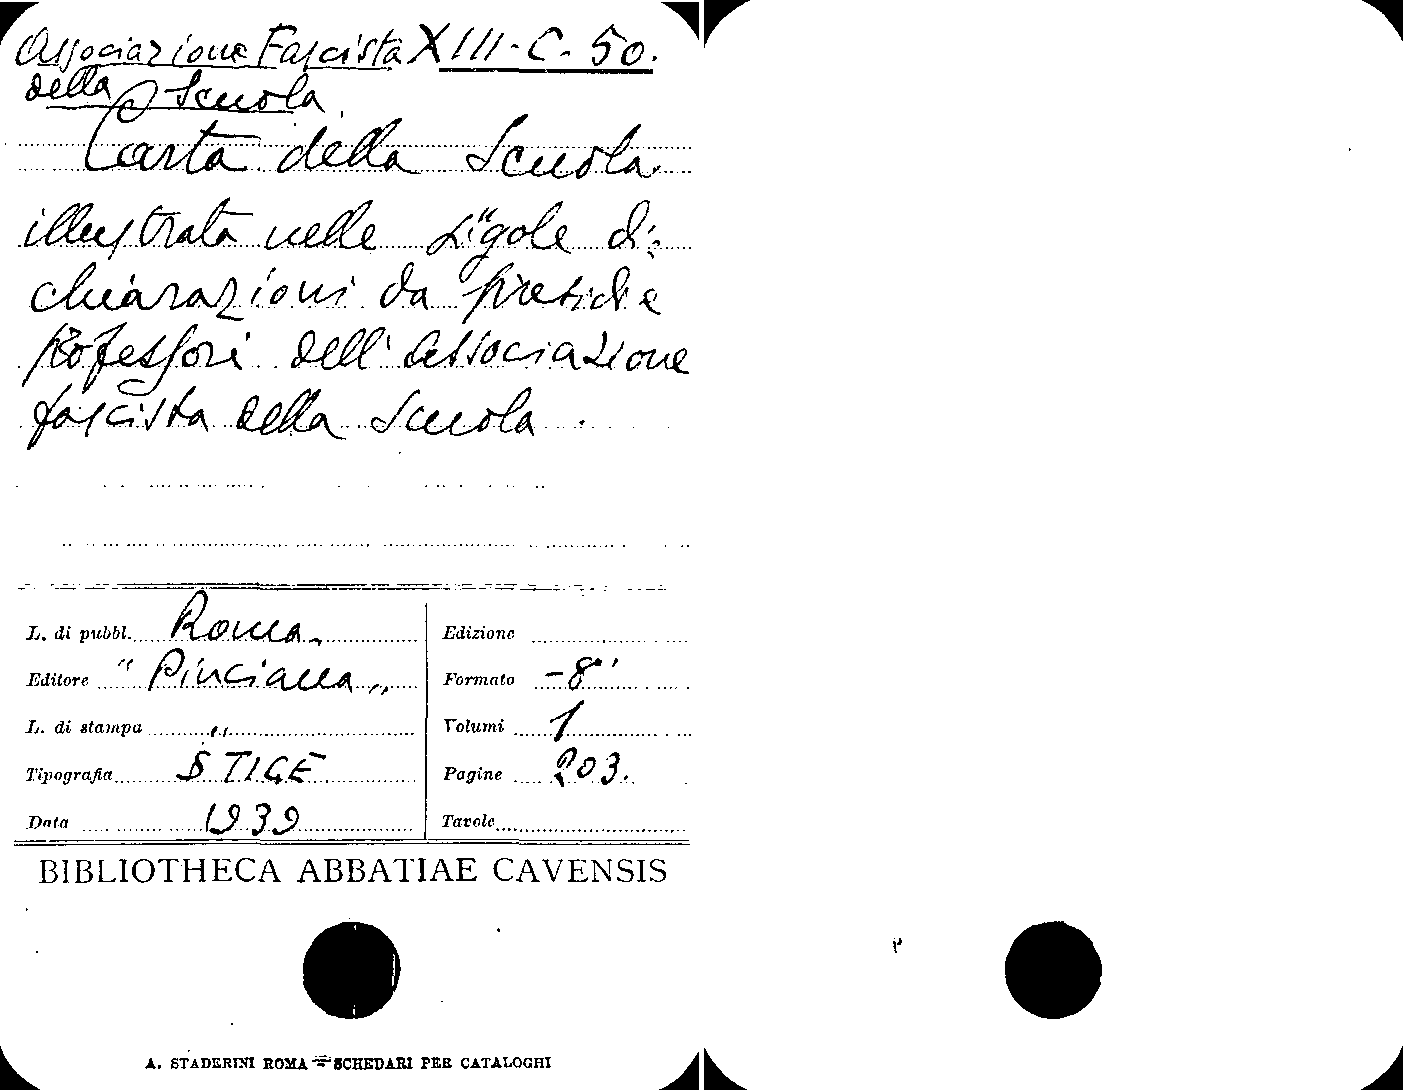 Associazione Fascista XIII-C-50.
della Scuola
Carta della Scuola
illustrata nelle si"gole di-
chiarazioni da presidi e
professori dell'associazione
fascista della Scuola.
L. di pubbl. Roma
Edizione
Editore "Pinciana"
Formato -8°'
L. di stampa "
Volumi 1
Tipografia STIGE
Pagine 203.
Data 1939
Tavole
BIBLIOTHECA ABBATIAE CAVENSIS
A. STADERINI ROMA = SCHEDARI PER CATALOGHI